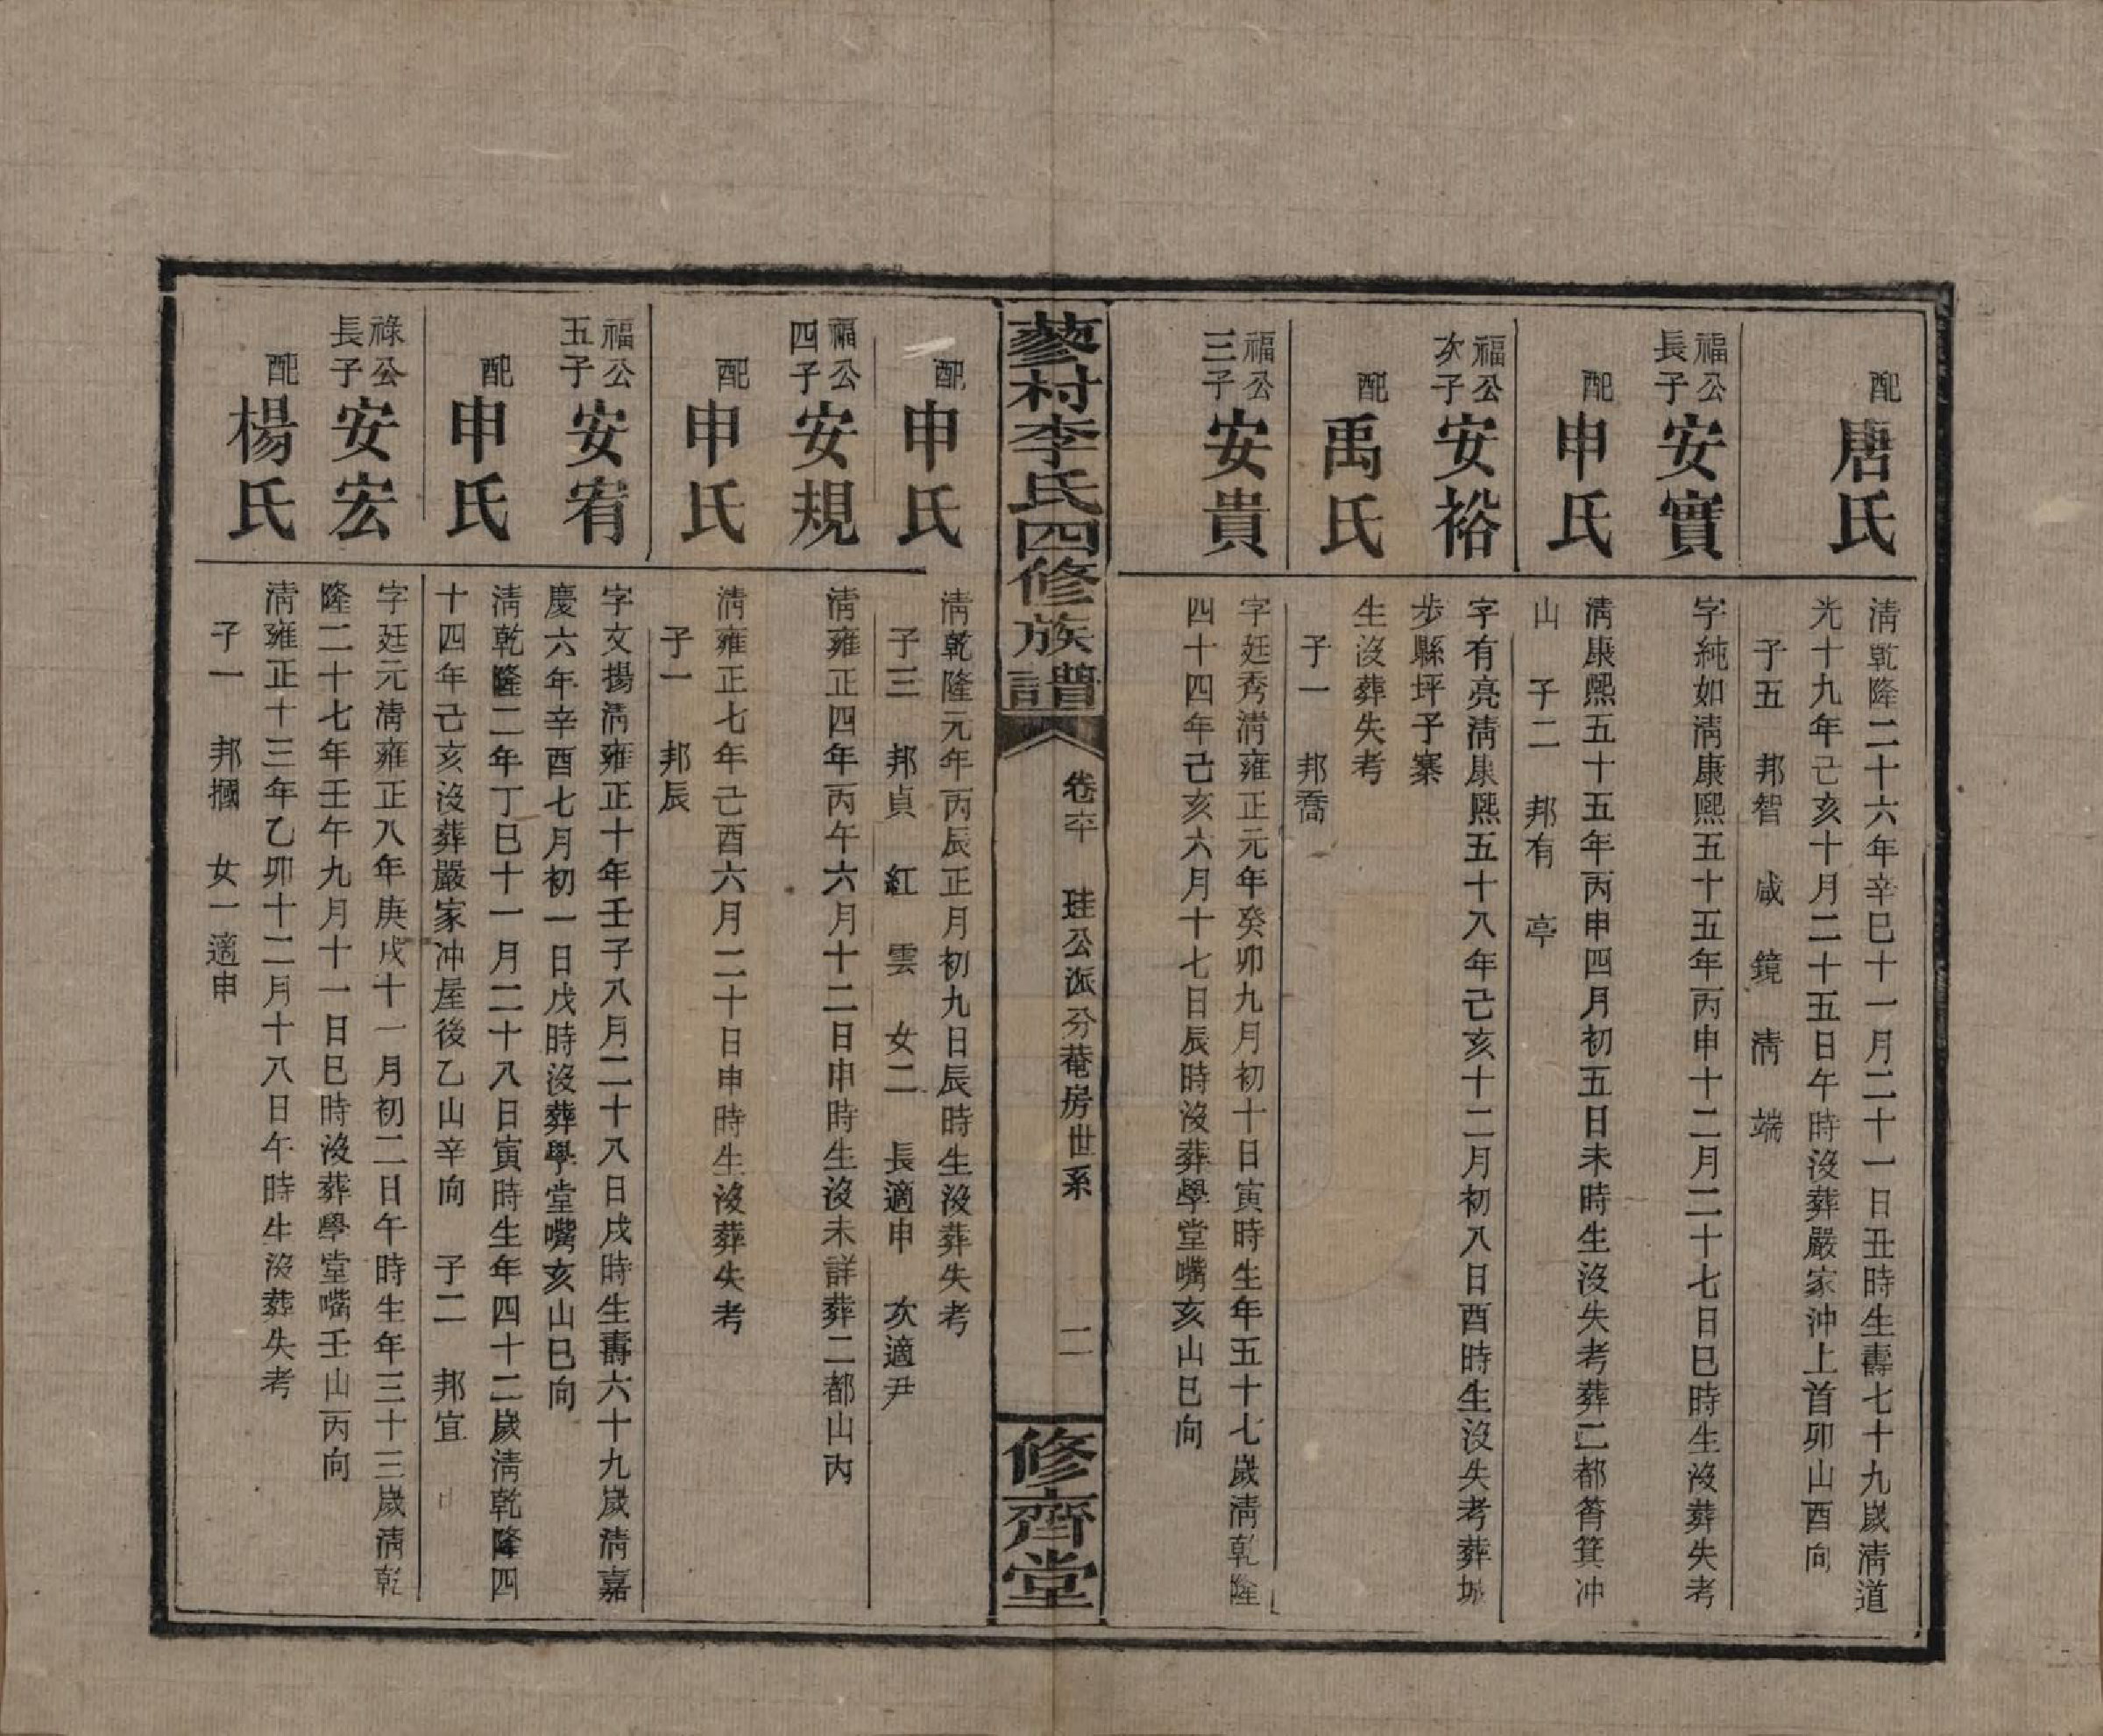 配唐氏
清乾隆二十六年辛巳十一月二十一日丑時生壽七十九歲清道
光十九年己亥十月二十五日午時沒葬嚴家沖上首卯山酉向
子五 邦智 咸 鏡 清 端
福公長子安實
字純如清康熙五十五年丙申十二月二十七日巳時生沒葬失考
配申氏
清康熙五十五年丙申四月初五日未時生沒失考葬二都筲箕冲
山 子二 邦有 亭
福公次子安裕
字有亮清康熙五十八年己亥十二月初八日酉時生沒失考葬城
步縣坪子寨
配禹氏
生沒葬失考
子一 邦喬
福公三子安貴
字廷秀清雍正元年癸卯九月初十日寅時生年五十七歲清乾隆
四十四年己亥六月十七日辰時沒葬學堂嘴亥山巳向
蓼村李氏四修族譜
卷卒 珪公派分菴房世系 二
修齊堂
配申氏
清乾隆元年丙辰正月初九日辰時生沒葬失考
子三 邦貞 紅 雲 女二 長適申 次適尹
福公四子安規
清雍正四年丙午六月十二日申時生沒未詳葬二都山內
配申氏
清雍正七年己酉六月二十日申時生沒葬失考
子一 邦辰
福公五子安宥
字文揚清雍正十年壬子八月二十八日戌時生壽六十九歲清嘉
慶六年辛酉七月初一日戌時沒葬學堂嘴亥山巳向
配申氏
清乾隆二年丁巳十一月二十八日寅時生年四十二歲清乾隆四
十四年己亥沒葬嚴家冲屋後乙山辛向 子二 邦宜
祿公長子安宏
字廷元清雍正八年庚戌十一月初二日午時生年三十三歲清乾
隆二十七年壬午九月十一日巳時沒葬學堂嘴壬山丙向
配楊氏
清雍正十三年乙卯十二月十八日午時生沒葬失考
子一 邦摑 女一適申